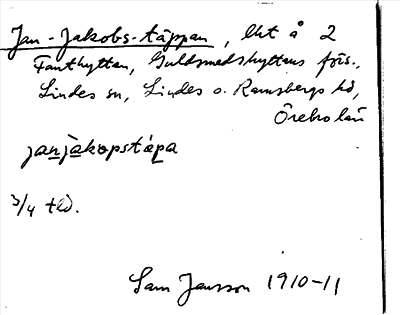 Jan-Jakobs-täppan, lht å 2
Fanthyttan, Guldsmedshyttans förs.,
Lindes sn, Lindes o. Ramsbergs hd,
Örebro län
janjàkopstápa
3/4 tld.
Sam Jansson 1910-11